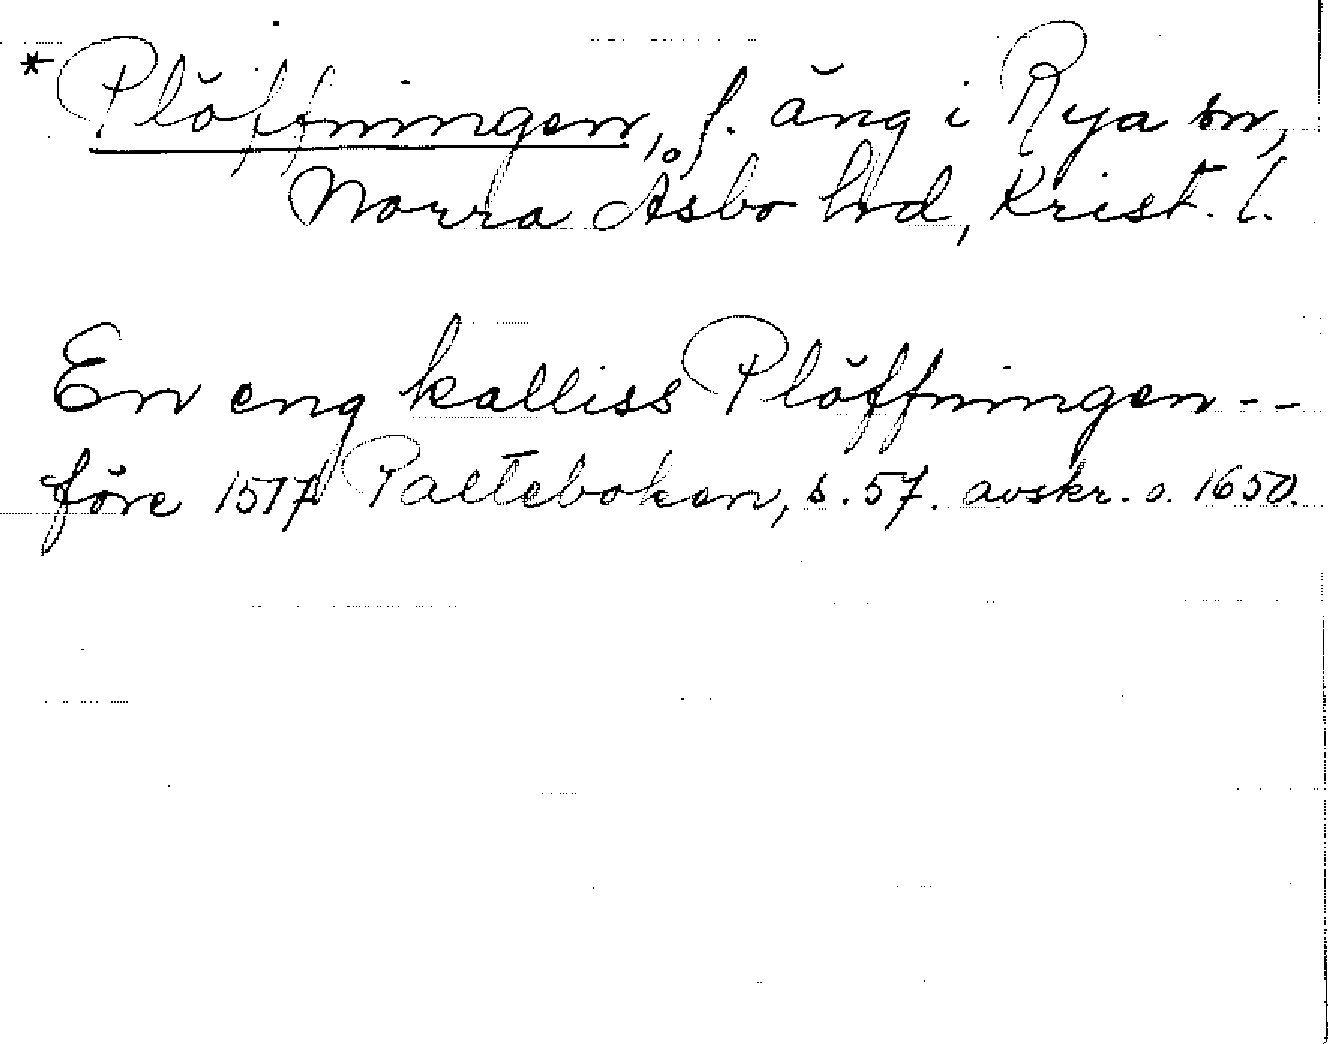 *Plöffningen, f. äng i Rya sn,
Norra Åsbo hd, Krist. l.
En eng kalliss Plöffningen--
före 1517 Palteboken, s. 57. avskr. o. 1650.